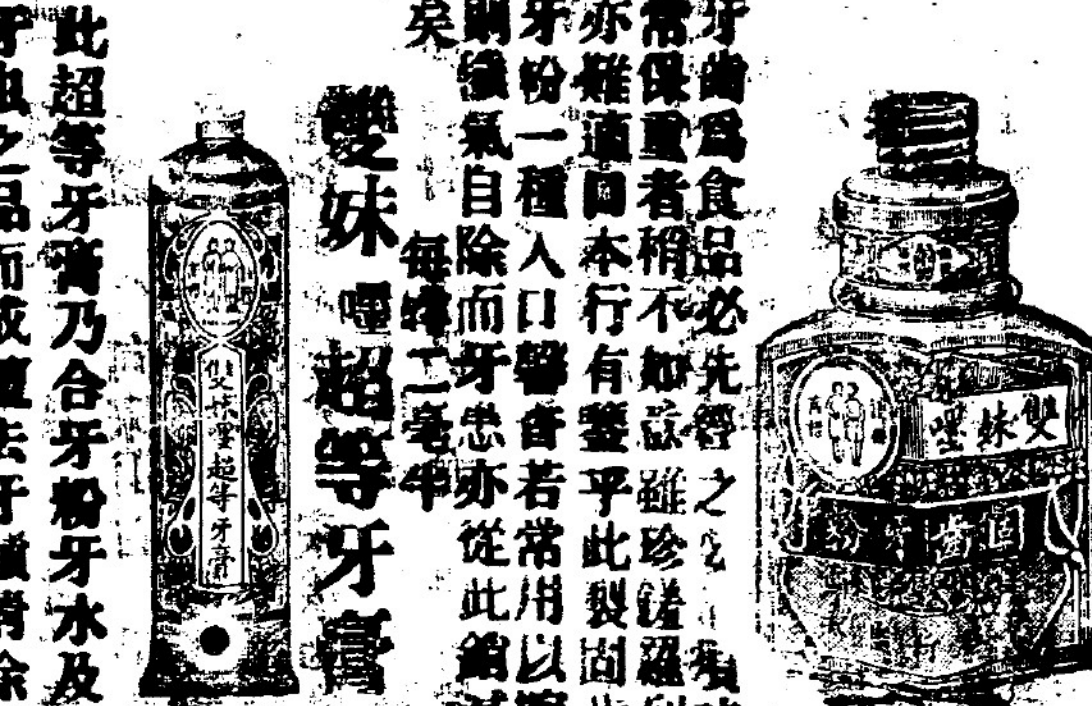 雙妹嚜
固齒牙粉
牙齒爲食品必先經之
常保重者稍不如雖珍饈羅
亦難適口本行有鑒乎此製固
牙粉一種入口馨香若常用以
則穢氣自除而牙患亦從此銷滅
矣
每罇二毫半
雙妹嚜超等牙膏
雙妹嚜超等牙膏
此超等牙膏乃合牙粉牙水及
牙虫之品而成去牙除